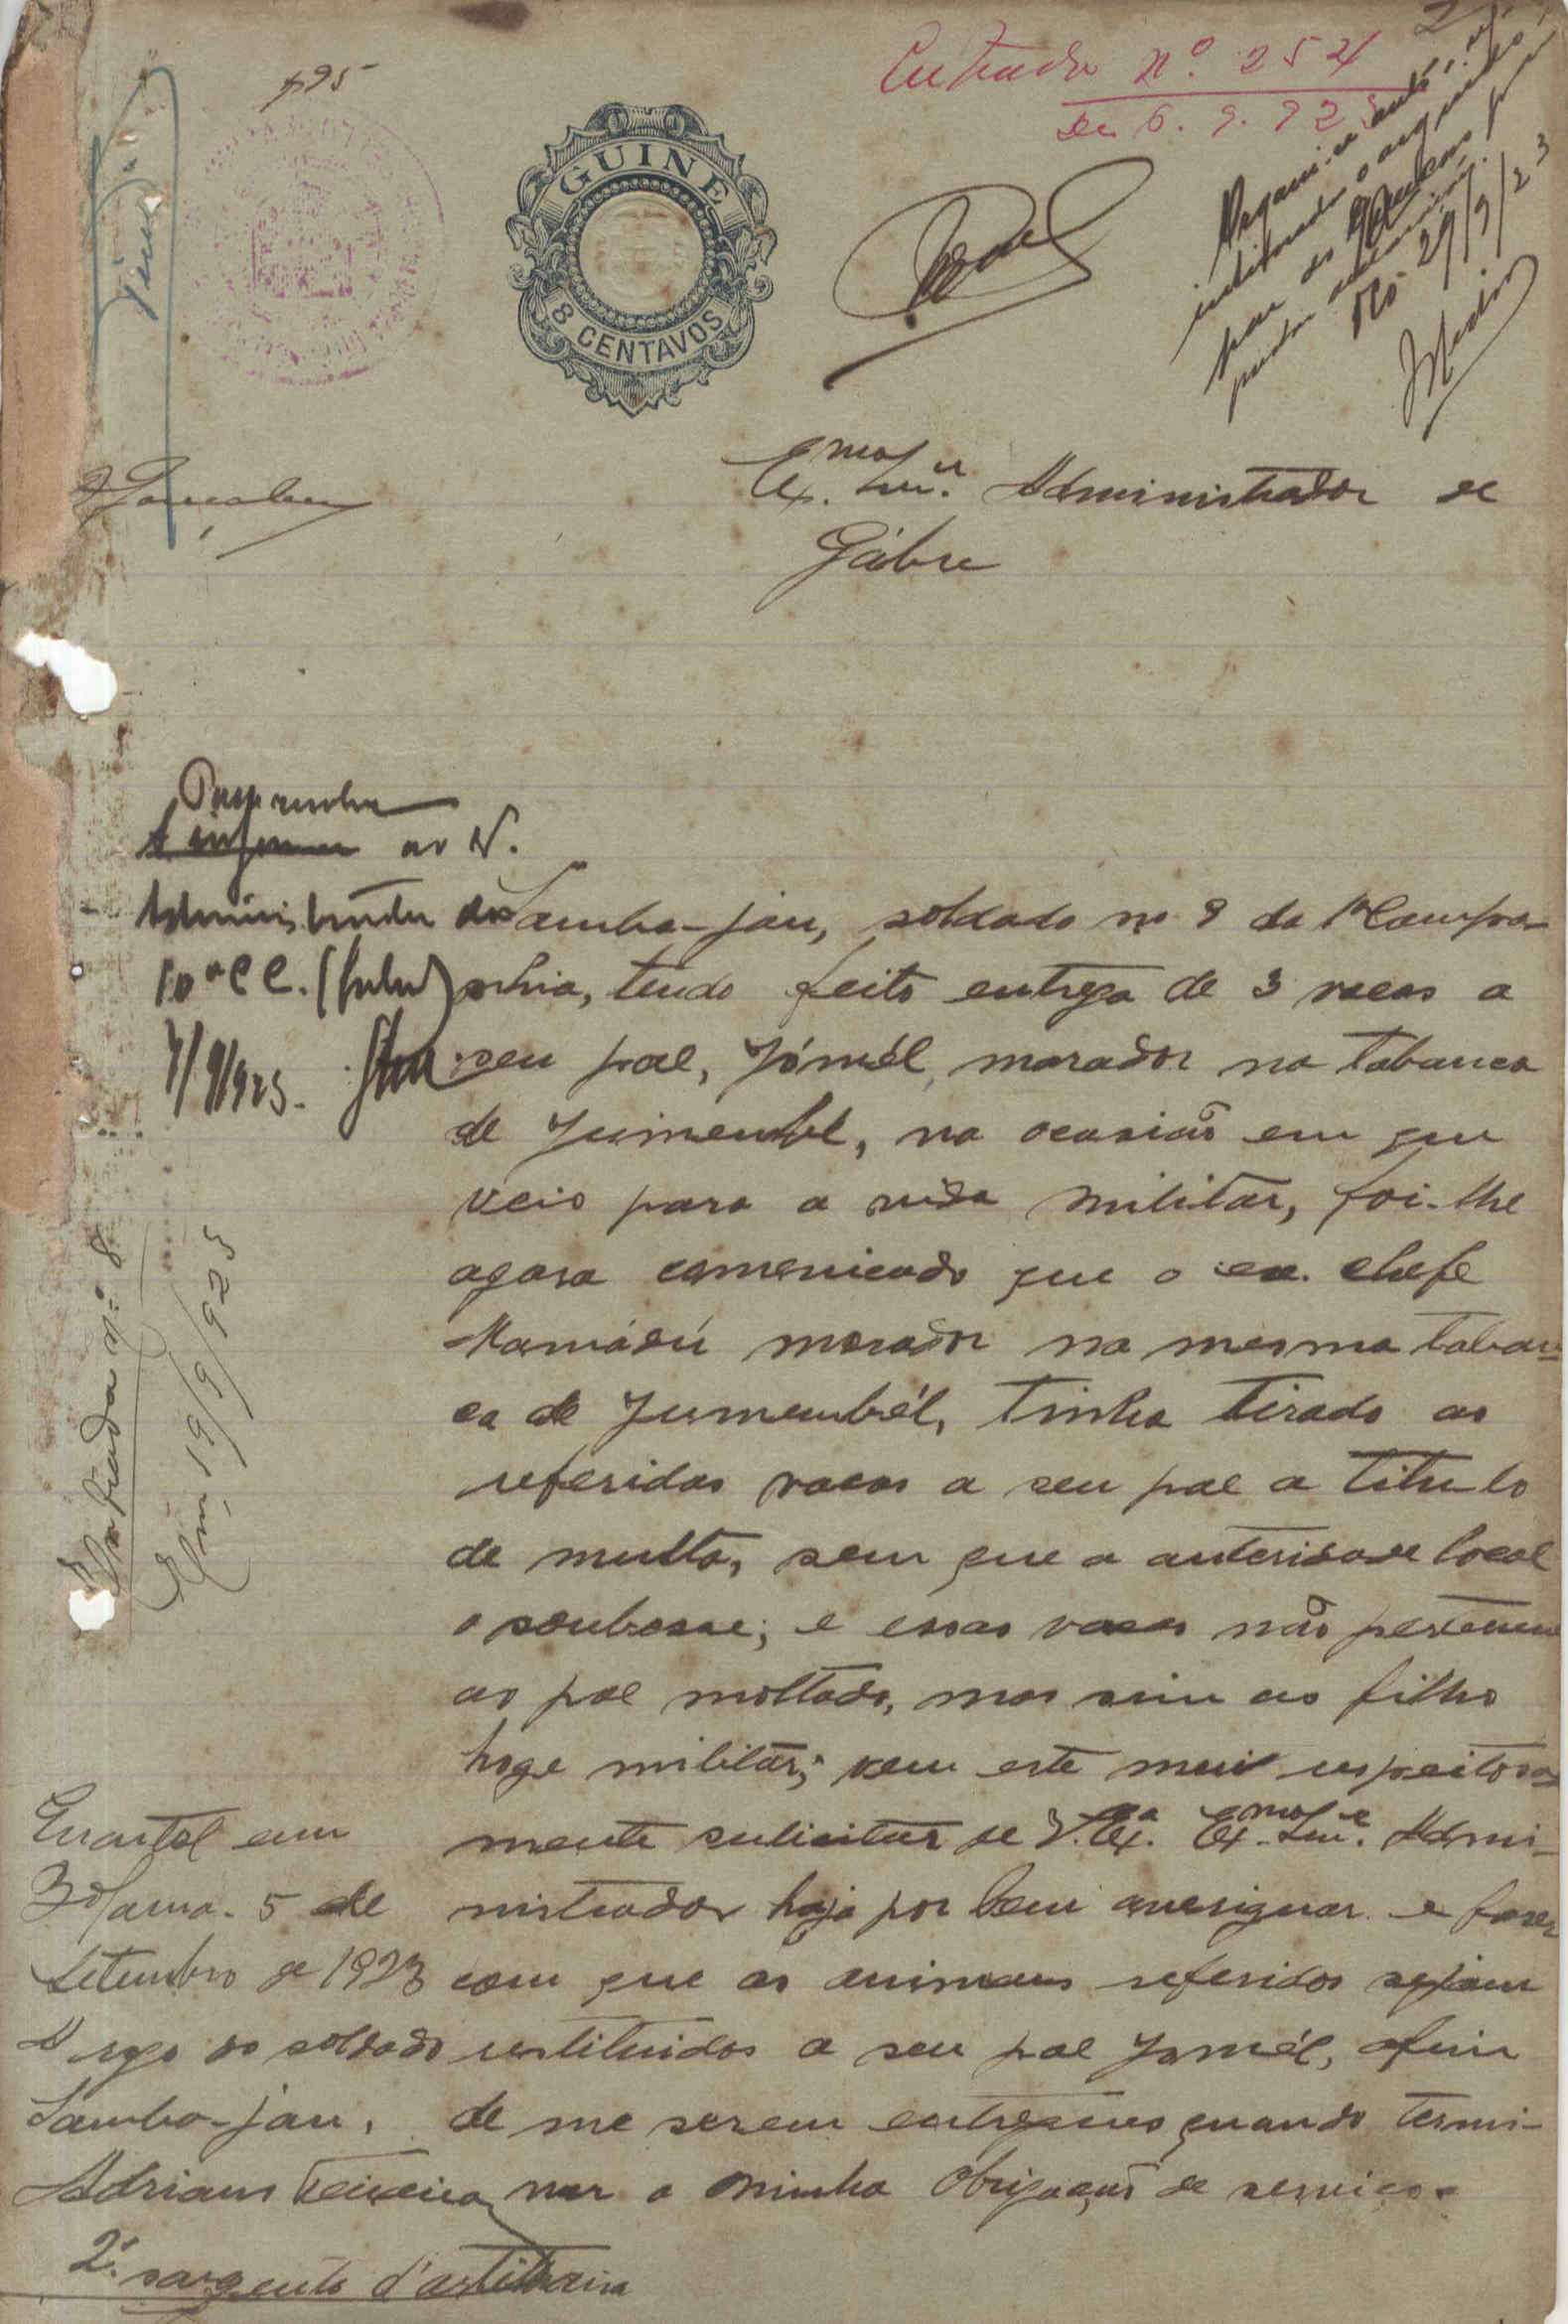 Entrada nº 254
de 6. 9. 923
GUINE
8 CENTAVOS
29/9/23
Exmo Snr. Administrador de
Gábu
ao
Administrador
10ª C C.
7/9/923.
Samba-jau, soldado nº 9 da 1ª Compa-
nhia, tendo feito entrega de 3 vacas a
seu pae, Jómél, morador na tabanca
de, na ocasião em que
veio para a vida militar, foi-lhe
agora comonicado que o ex. chefe
Mamádú morador na mesma taban-
ca de Jumembél, tinha tirado as
referidas vacas a seu pae a titulo
de multa, sem que a autoridade local
o soubesse; e essas vacas não pertencem
ao pae moltado, mas sim ao filho
hoge militar; vem este mui respeitosa
mente sulicitar de V. Exª. Exmo Snr. Admi-
nistrador haja por bem avesiguar e fazer
com que os animaes referidos sejam
restituidos a seu pae Jomél, afim
de me serem entregues quando termi-
nar a minha obrigação de serviço.
Entrada nº 8
Em, 19/9/923
Quartel em
Bolama. 5 de
Setembro de 1923
A rogo do soldado
Samba-jau,
Adriano Teixeira
2º. sargento d'artilharia